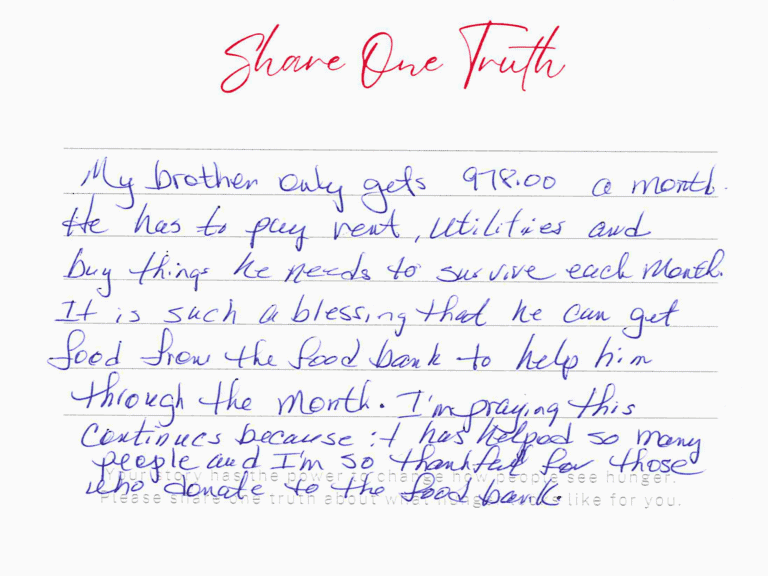 Share One Truth
My brother only gets 978.00 a month.
He has to pay rent, utilities and
buy things he needs to survive each month.
It is such a blessing that he can get
food from the food bank to help him
through the month. I'm praying this
continues because it has helped so many
people and I'm so thankful for those
who donate to the food bank.
Your story has the power to change how people see hunger.
Please share one truth about what hunger looks like for you.